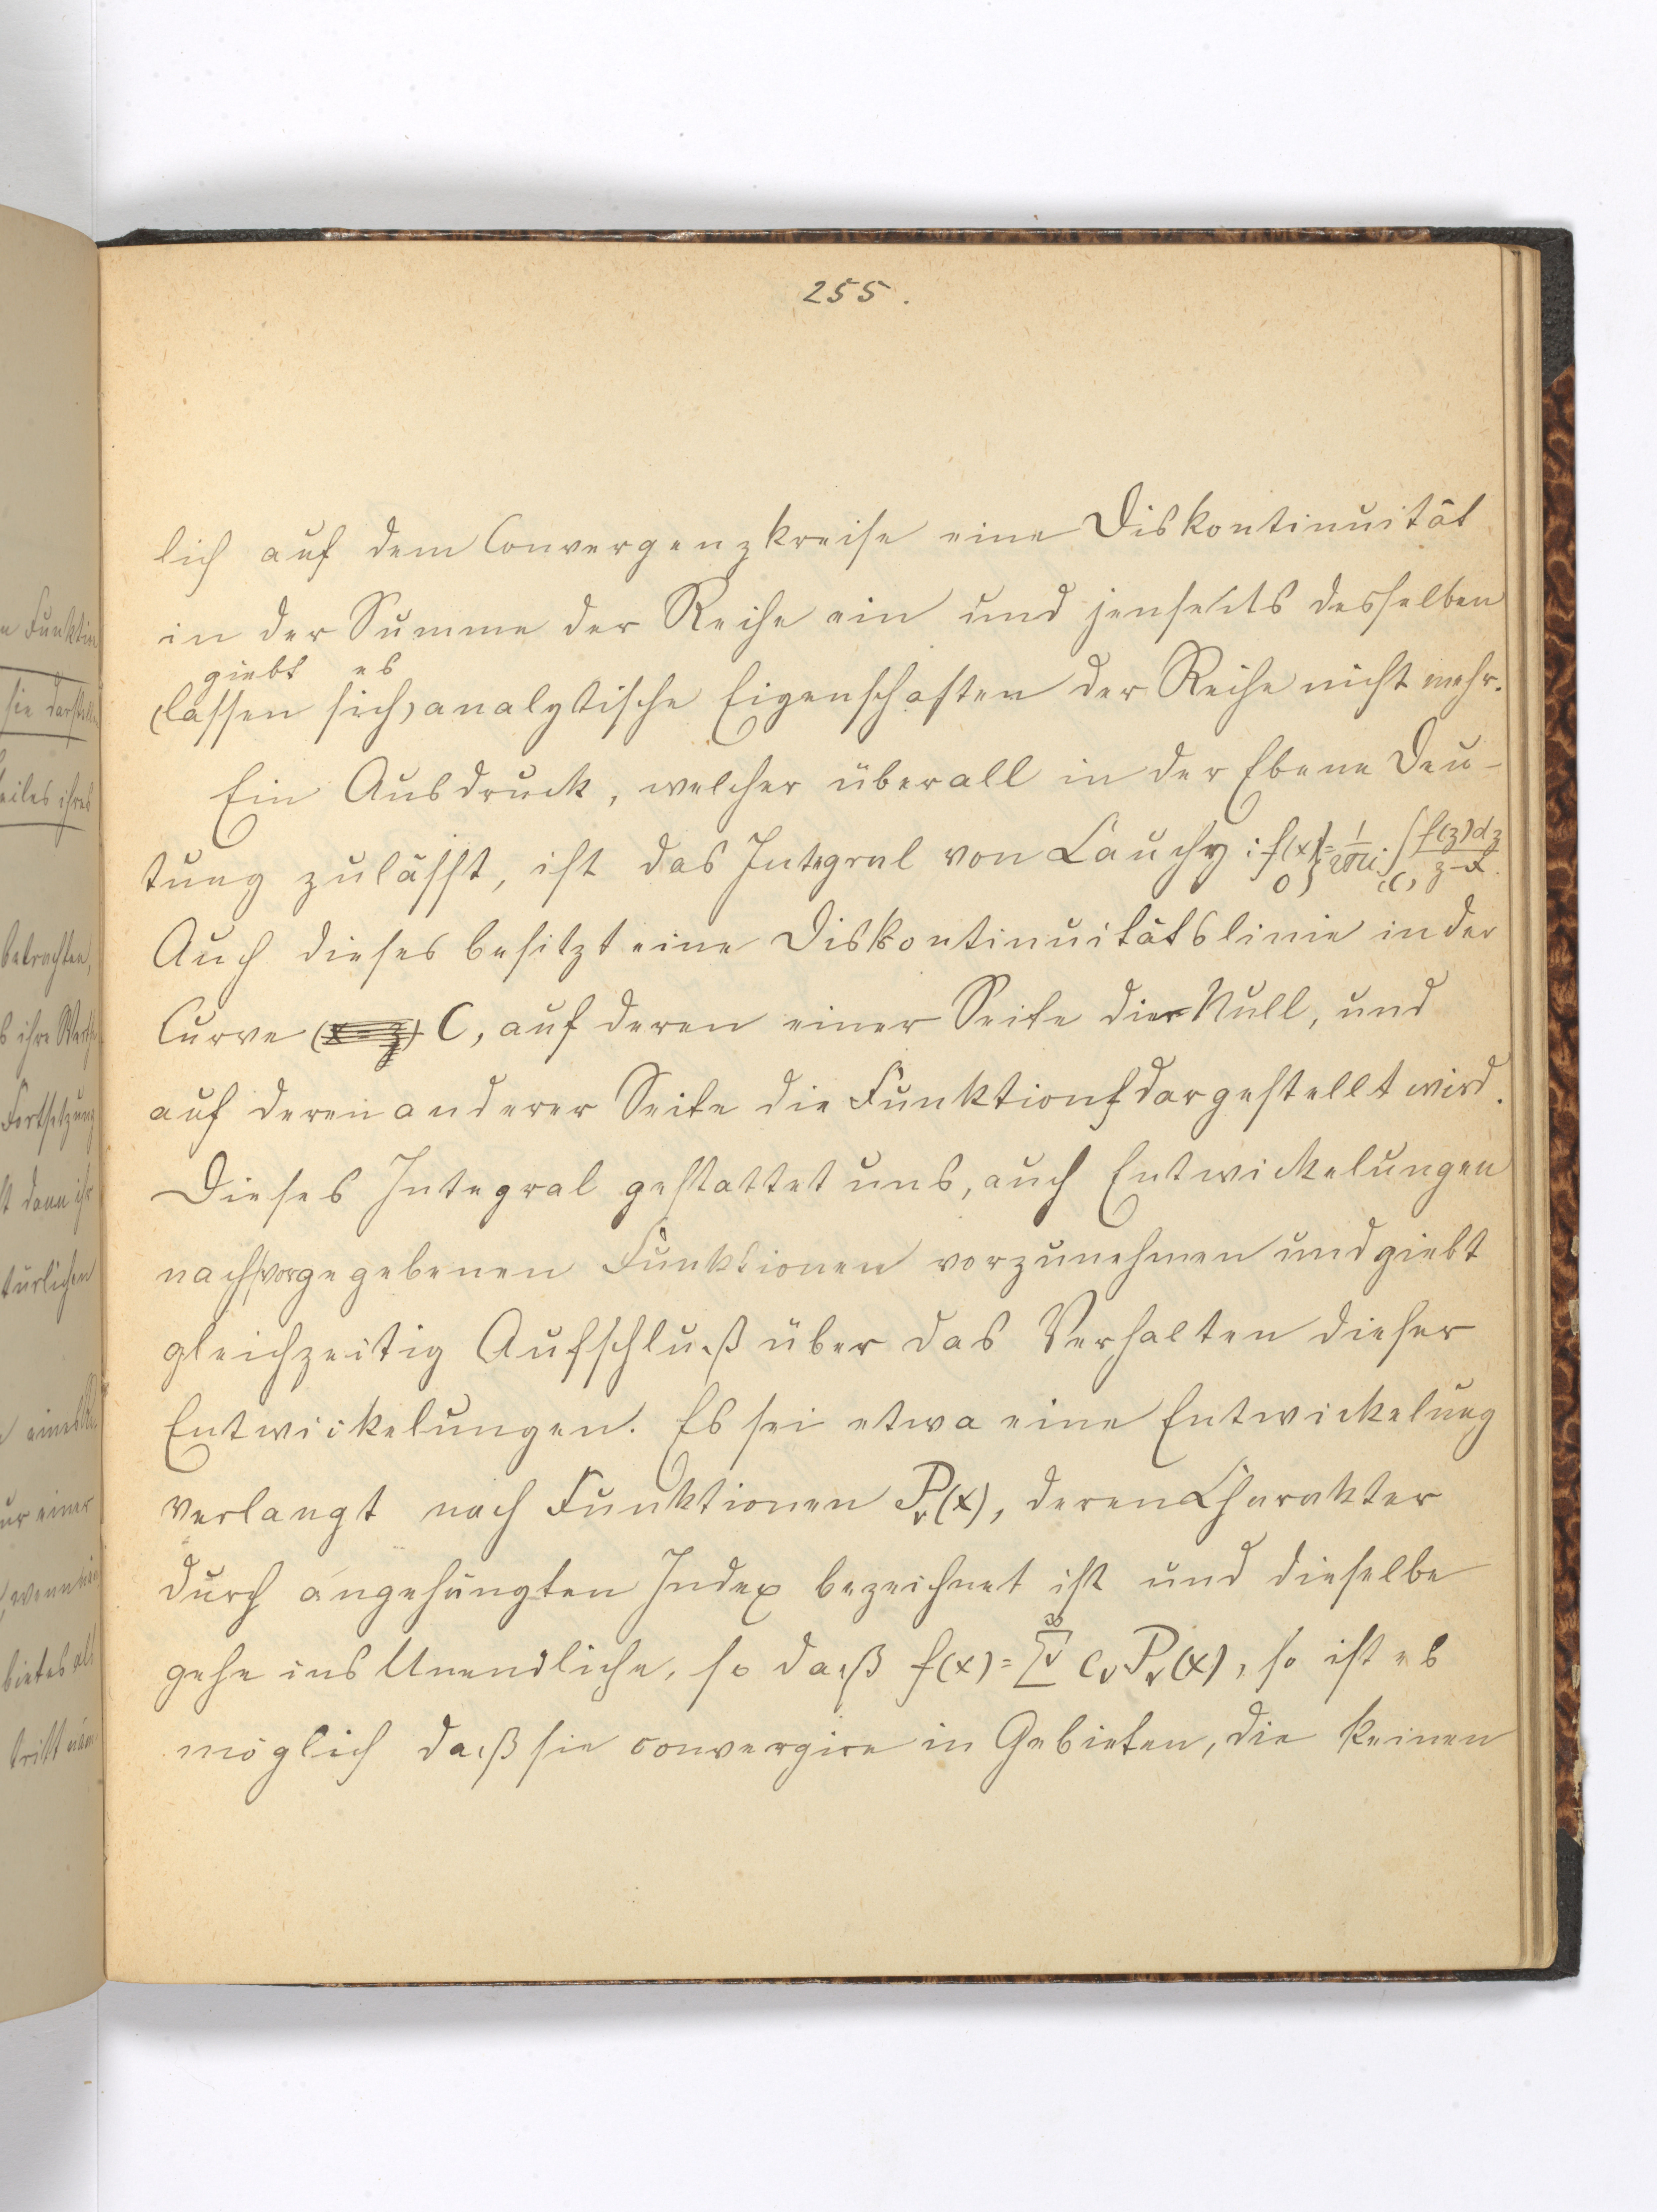 255.
lich auf dem Convergenzkreise eine Diskontinuität
in der Summe der Reihe ein und jenseits desselben
giebt es
(lassen sich) analytische Eigenschaften der Reihe nicht mehr.
Ein Ausdruck, welcher überall in der Ebene Deu-
tung zulässt, ist das Integral von Cauchy: f(x) 0 } = 1/2πi · ∫(C) f(z)dz/z-x.
Auch dieses besitzt eine Diskontinuitätslinie in der
Curve (x-z) C, auf deren einer Seite die Null, und
auf deren anderer Seite die Funktion f dargestellt wird.
Dieses Integral gestattet uns, auch Entwickelungen
nach vorgegebenen Funktionen vorzunehmen und giebt
gleichzeitig Aufschluß über das Verhalten dieser
Entwickelungen. Es sei etwa eine Entwickelung
verlangt nach Funktionen Pν(x), deren Charakter
durch angehängten Index bezeichnet ist und dieselbe
gehe ins Unendliche, so daß f(x) = Σν^∞ cν Pν(x), so ist es
möglich daß sie convergire in Gebieten, die keinen
n Funktion
sie darstellen
eiles ihres
betrachten,
s ihre Werthe
Fortsetzung
st dann ihr
türlichen
ur einer
bietes als
tritt näm